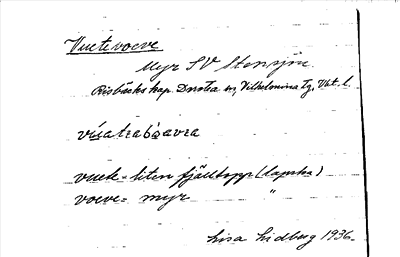 Vuetevoeve
Myr SV Stensjön
Risbäcks kap. Dorotea sn, Vilhelmina tg, Vbt. l.
vuek = liten fjälltopp (lapska)
voeve = myr "
Lisa Lidberg 1936.